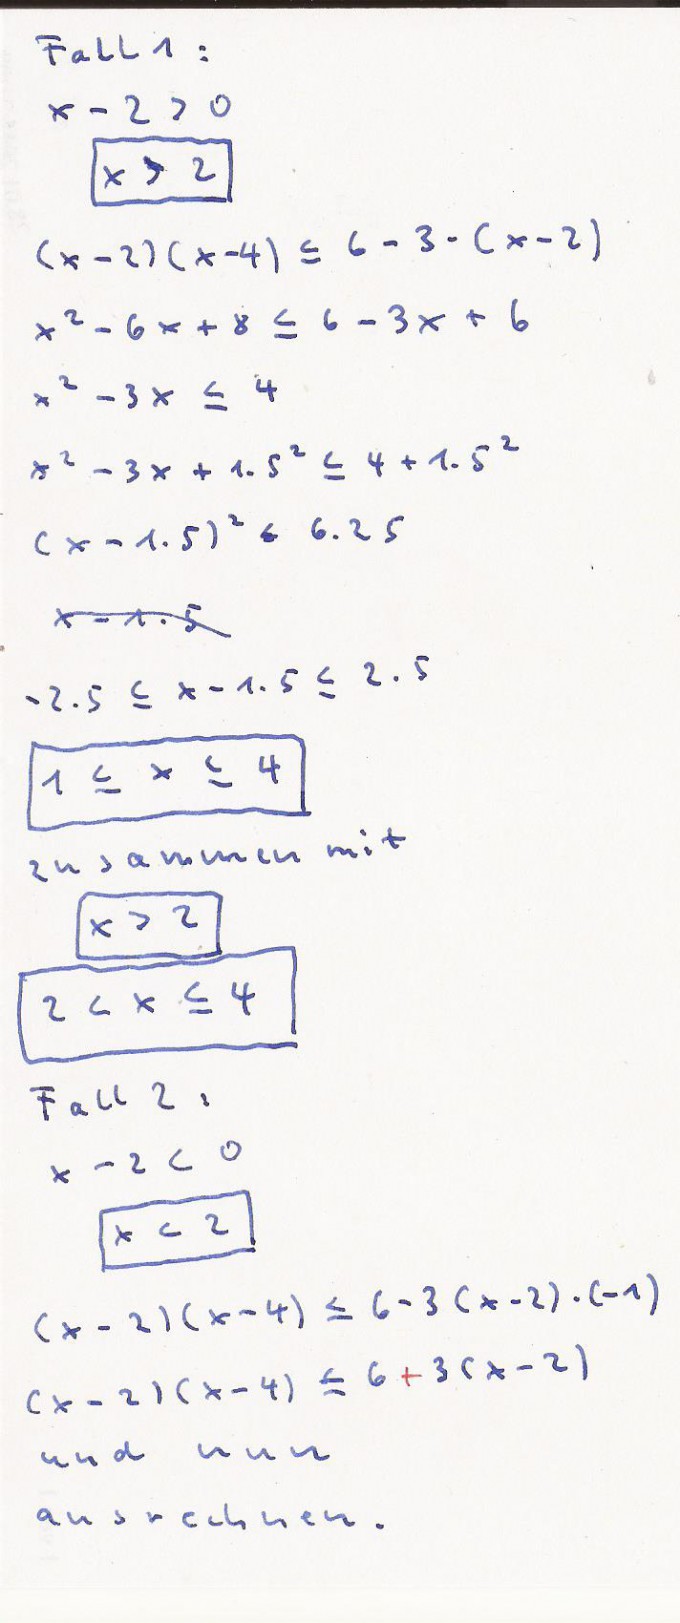 Fall 1:
x - 2 > 0
x > 2
(x-2)(x-4) ≤ 6 - 3 · (x-2)
x² - 6x + 8 ≤ 6 - 3x + 6
x² - 3x ≤ 4
x² - 3x + 1.5² ≤ 4 + 1.5²
(x - 1.5)² ≤ 6.25
x - 1.5
-2.5 ≤ x - 1.5 ≤ 2.5
1 ≤ x ≤ 4
zusammen mit
x > 2
2 < x ≤ 4
Fall 2:
x - 2 < 0
x < 2
(x-2)(x-4) ≤ 6 - 3(x-2)·(-1)
(x-2)(x-4) ≤ 6 + 3(x-2)
und nun
ausrechnen.